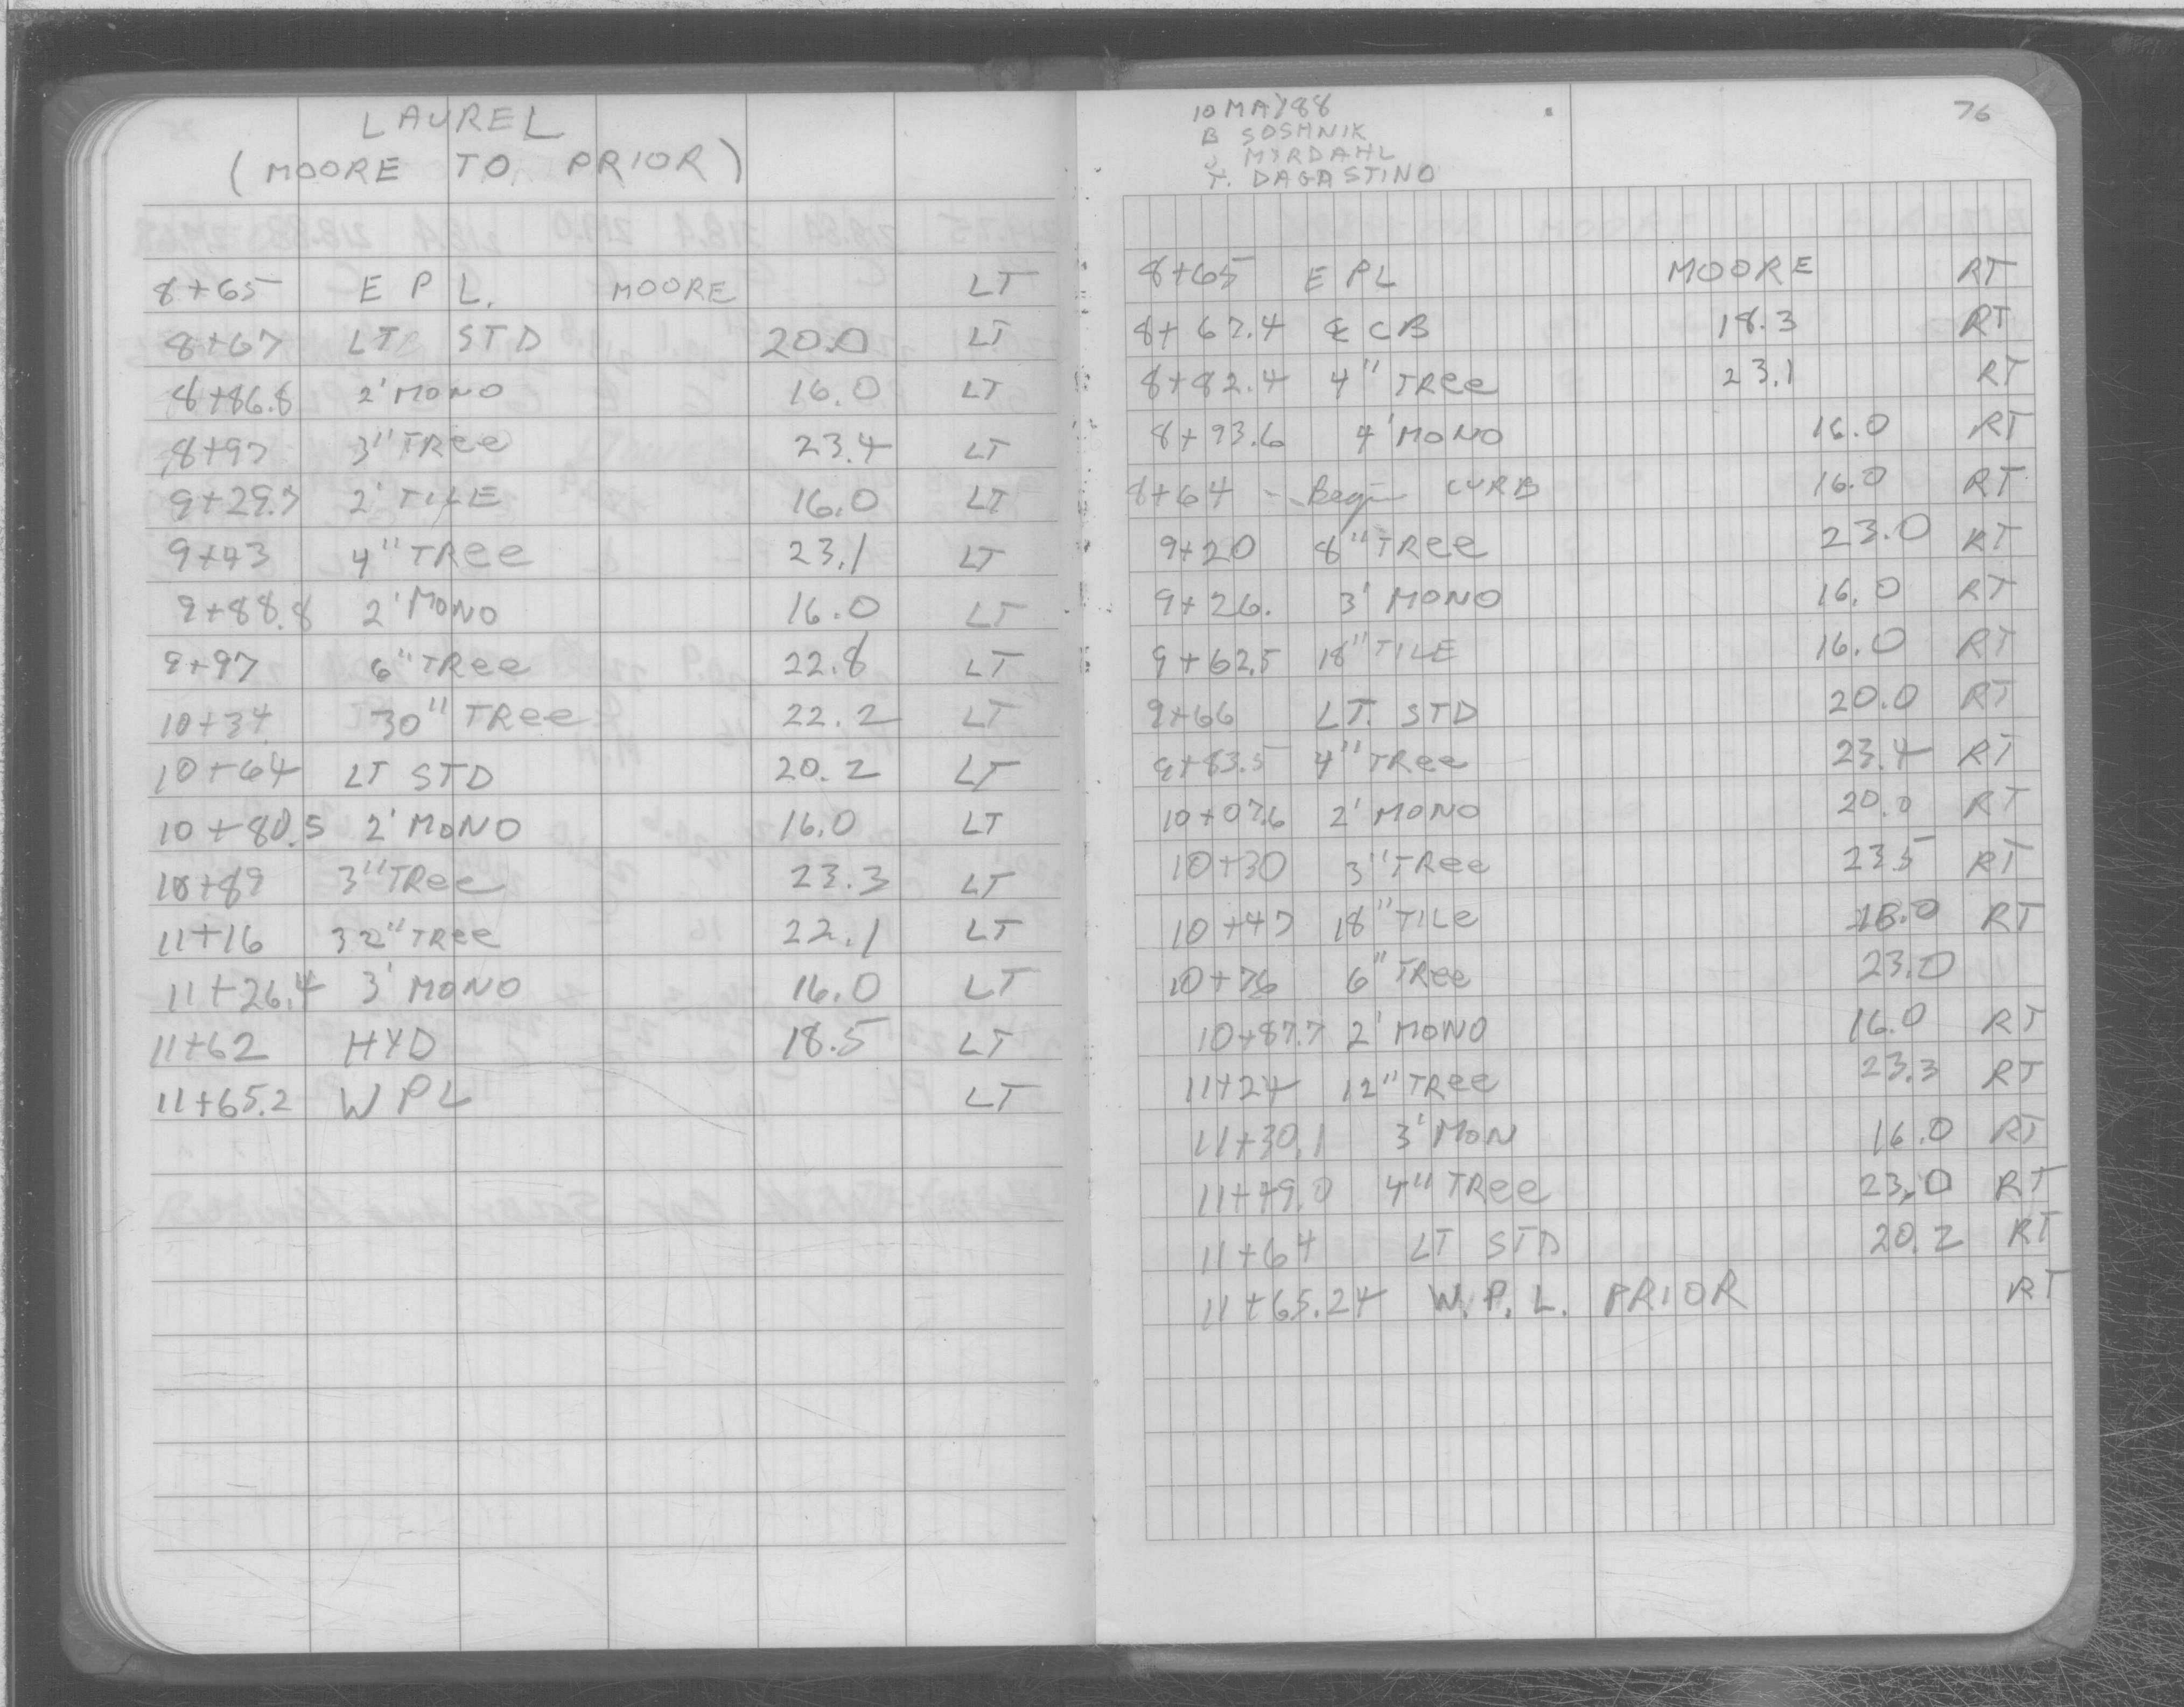 LAUREL
(MOORE TO PRIOR)
8+65 E P L. MOORE LT
8+67 LT STD 20.0 LT
8+86.8 2' MONO 16.0 LT
8+97 3" TRee 23.4 LT
9+29.7 2' TILE 16.0 LT
9+43 4" TRee 23.1 LT
9+88.8 2' MONO 16.0 LT
9+97 6" TRee 22.8 LT
10+34 30" TRee 22.2 LT
10+64 LT STD 20.2 LT
10+80.5 2' MONO 16.0 LT
10+89 3" TRee 23.3 LT
11+16 32" TRee 22.1 LT
11+26.4 3' MONO 16.0 LT
11+62 HYD 18.5 LT
11+65.2 W PL LT
10 MAY 88 76
B SOSHNIK
MYRDAHL
T. DAGASTINO
8+65 E PL MOORE RT
8+67.4 ℄ CB 18.3 RT
8+82.4 4" TRee 23.1 RT
8+93.6 4' MONO 16.0 RT
8+64 -- Begin CURB 16.0 RT
9+20 8" TRee 23.0 RT
9+26. 3' MONO 16.0 RT
9+62.5 18" TILE 16.0 RT
9+66 LT. STD 20.0 RT
9+83.5 4" TRee 23.4 RT
10+07.6 2' MONO 20.0 RT
10+30 3" TRee 23.5 RT
10+47 18" TILe RT
10+76 6" TRee 23.0
10+87.7 2' MONO 16.0 RT
11+24 12" TRee 23.3 RT
11+30.1 3' MON 16.0 RT
11+49.0 4" TRee 23.0 RT
11+64 LT STD 20.2 RT
11+65.24 W. P. L. PRIOR RT